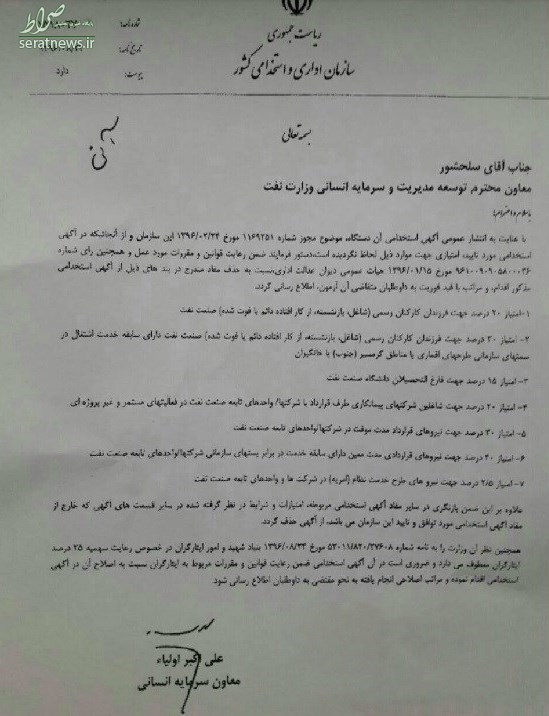 صراط
seratnews.ir
ریاست جمهوری
سازمان اداری و استخدامی کشور
شماره نامه:
تاریخ نامه:
پیوست:
دارد
بسمه تعالی
جناب آقای سلحشور
معاون محترم توسعه مدیریت و سرمایه انسانی وزارت نفت
با سلام و احترام؛
با عنایت به انتشار عمومی آگهی استخدامی آن دستگاه، موضوع مجوز شماره ۱۱۶۹۲۵۱ مورخ ۱۳۹۶/۰۲/۲۴ این سازمان و از آنجائیکه در آگهی
استخدامی مورد تایید امتیازی جهت موارد ذیل لحاظ نگردیده است،دستور فرمایند ضمن رعایت قوانین و مقررات مورد عمل و همچنین رای شماره
۹۶۱۰۰۹۰۹۰۵۸۰۰۰۳۶ مورخ ۱۳۹۶/۰۱/۱۵ هیات عمومی دیوان عدالت اداری،نسبت به حذف مفاد مندرج در بند های ذیل از آگهی استخدامی
مذکور اقدام، و مراتب با قید فوریت به داوطلبان متقاضی آن آزمون، اطلاع رسانی گردد.
۱-امتیاز ۲۰ درصد جهت فرزندان کارکنان رسمی (شاغل، بازنشسته، از کار افتاده دائم یا فوت شده) صنعت نفت
۲- امتیاز ۳۰ درصد جهت فرزندان کارکنان رسمی (شاغل، بازنشسته، از کار افتاده دائم یا فوت شده) صنعت نفت دارای سابقه خدمت اشتغال در
سمتهای سازمانی طرحهای اقماری یا مناطق گرمسیر (جنوب) یا خانگیران
۳- امتیاز ۱۵ درصد جهت فارغ التحصیلان دانشگاه صنعت نفت
۴- امتیاز ۲۰ درصد جهت شاغلین شرکتهای پیمانکاری طرف قرارداد با شرکتها/ واحدهای تابعه صنعت نفت در فعالیتهای مستمر و غیر پروژه ای
۵- امتیاز ۳۰ درصد جهت نیروهای قرارداد مدت موقت در شرکتها/واحدهای تابعه صنعت نفت
۶- امتیاز ۴۰ درصد جهت نیروهای قراردادی مدت معین دارای سابقه خدمت در برابر پستهای سازمانی شرکتها/واحدهای تابعه صنعت نفت
۷- امتیاز ۲/۵ درصد جهت نیرو های طرح خدمت نظام (امریه) در شرکت ها و واحدهای تابعه صنعت نفت
علاوه بر این ضمن بازنگری در سایر مفاد آگهی استخدامی مربوطه، امتیازات و شرایط در نظر گرفته شده در سایر قسمت های آگهی که خارج از
مفاد آگهی استخدامی مورد توافق و تایید این سازمان می باشد، از آگهی حذف گردد.
همچنین نظر آن وزارت را به نامه شماره ۵۳۰۱۱/۸۲۰/۲۷۶۰۸ مورخ ۱۳۹۶/۰۸/۲۳ بنیاد شهید و امور ایثارگران در خصوص رعایت سهمیه ۲۵ درصد
ایثارگران معطوف می دارد و ضروری است در آن آگهی استخدامی ضمن رعایت قوانین و مقررات مربوط به ایثارگران نسبت به اصلاح آن در آگهی
استخدامی اقدام نموده و مراتب اصلاعی انجام یافته به نحو مقتضی به داوطلبان اطلاع رسانی شود.
علی اکبر اولیاء
معاون سرمایه انسانی